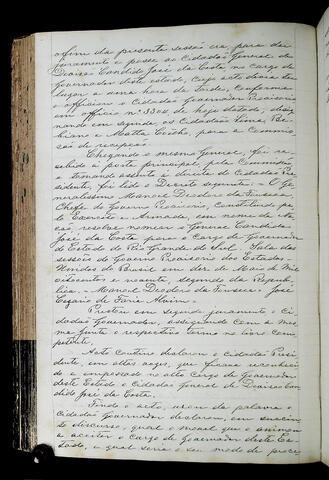 o fim da presente sessão era para dar
juramento e posse ao Cidadão General de
Divisão Candido José da Costa no cargo de
Governador deste estado, cujo acto devia ter
lugar a uma hora da tarde, conforme
o officiou o Cidadão Governador Provisorio
em officio nº 3300 de hoje datado,
nomeando em seguida os Cidadãos Lima,
e Matta Coelho, para a Commis-
são de recepção.
Chegando o mesmo General, foi re-
cebido à porta principal pela Commissão
e tomando assento à direita do Cidadão Pre-
sidente, foi lido o Decreto seguinte: = O Ge-
neralissimo Manoel Deodoro da Fonseca
Chefe do Governo Provisorio, Constituido pe-
lo Exercito e Armada, em nome da Na-
ção resolve nomear o General Candido
José da Costa para o Cargo de Governador
do Estado do Rio Grande do Sul. Sala das
sessões do Governo Provisorio dos Estados-
Unidos do Brazil em dez de Maio de mil
oitocentos e noventa, segundo da Republi-
ca. – Manoel Deodoro da Fonseca – José
Cesario de Faria Alvim –
Prestou em seguida juramento o Ci-
dadão Governador, assignando com a me-
sma junta o respectivo termo no livro com-
petente.
Acto continuo declarou o Cidadão Presi-
dente, em altas vozes, que ficava reconheci-
do e empossado no alto cargo de Governador
deste Estado o Cidadão General de Divisão Can-
dido José da Costa.
Findo o acto, usou da palavra o
Cidadão Governador declarou, em succin-
to discurso, qual o movel que o animou
a aceitar o cargo de Governador deste Es-
tado, e qual seria o seu modo de proce